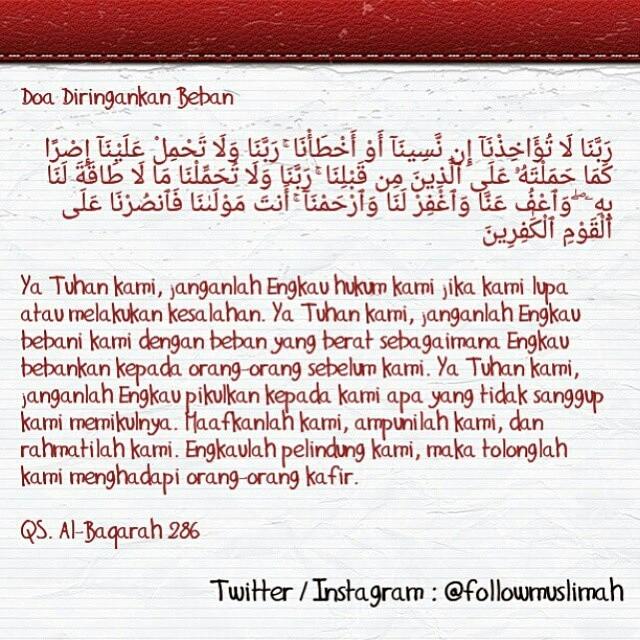 Doa Diringankan Beban
رَبَّنَا لَا تُؤَاخِذْنَآ إِن نَّسِينَآ أَوْ أَخْطَأْنَا ۚ رَبَّنَا وَلَا تَحْمِلْ عَلَيْنَآ إِصْرًا
كَمَا حَمَلْتَهُۥ عَلَى ٱلَّذِينَ مِن قَبْلِنَا ۚ رَبَّنَا وَلَا تُحَمِّلْنَا مَا لَا طَاقَةَ لَنَا
بِهِۦ ۖ وَٱعْفُ عَنَّا وَٱغْفِرْ لَنَا وَٱرْحَمْنَآ ۚ أَنتَ مَوْلَىٰنَا فَٱنصُرْنَا عَلَى
ٱلْقَوْمِ ٱلْكَٰفِرِينَ
Ya Tuhan kami, janganlah Engkau hukum kami jika kami lupa
atau melakukan kesalahan. Ya Tuhan kami, janganlah Engkau
bebani kami dengan beban yang berat sebagaimana Engkau
bebankan kepada orang-orang sebelum kami. Ya Tuhan kami,
janganlah Engkau pikulkan kepada kami apa yang tidak sanggup
kami memikulnya. Maafkanlah kami, ampunilah kami, dan
rahmatilah kami. Engkaulah pelindung kami, maka tolonglah
kami menghadapi orang-orang kafir.
QS. Al-Baqarah 286
Twitter / Instagram : @followmuslimah